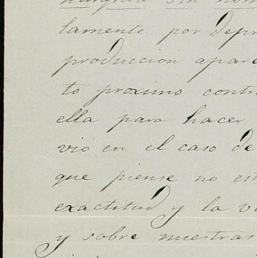 sin
lamente por depr
produccion apare
to proximo contr
ella para hacer
vió en el caso de
que piense no en
exactitud y la v
y sobre nuestras